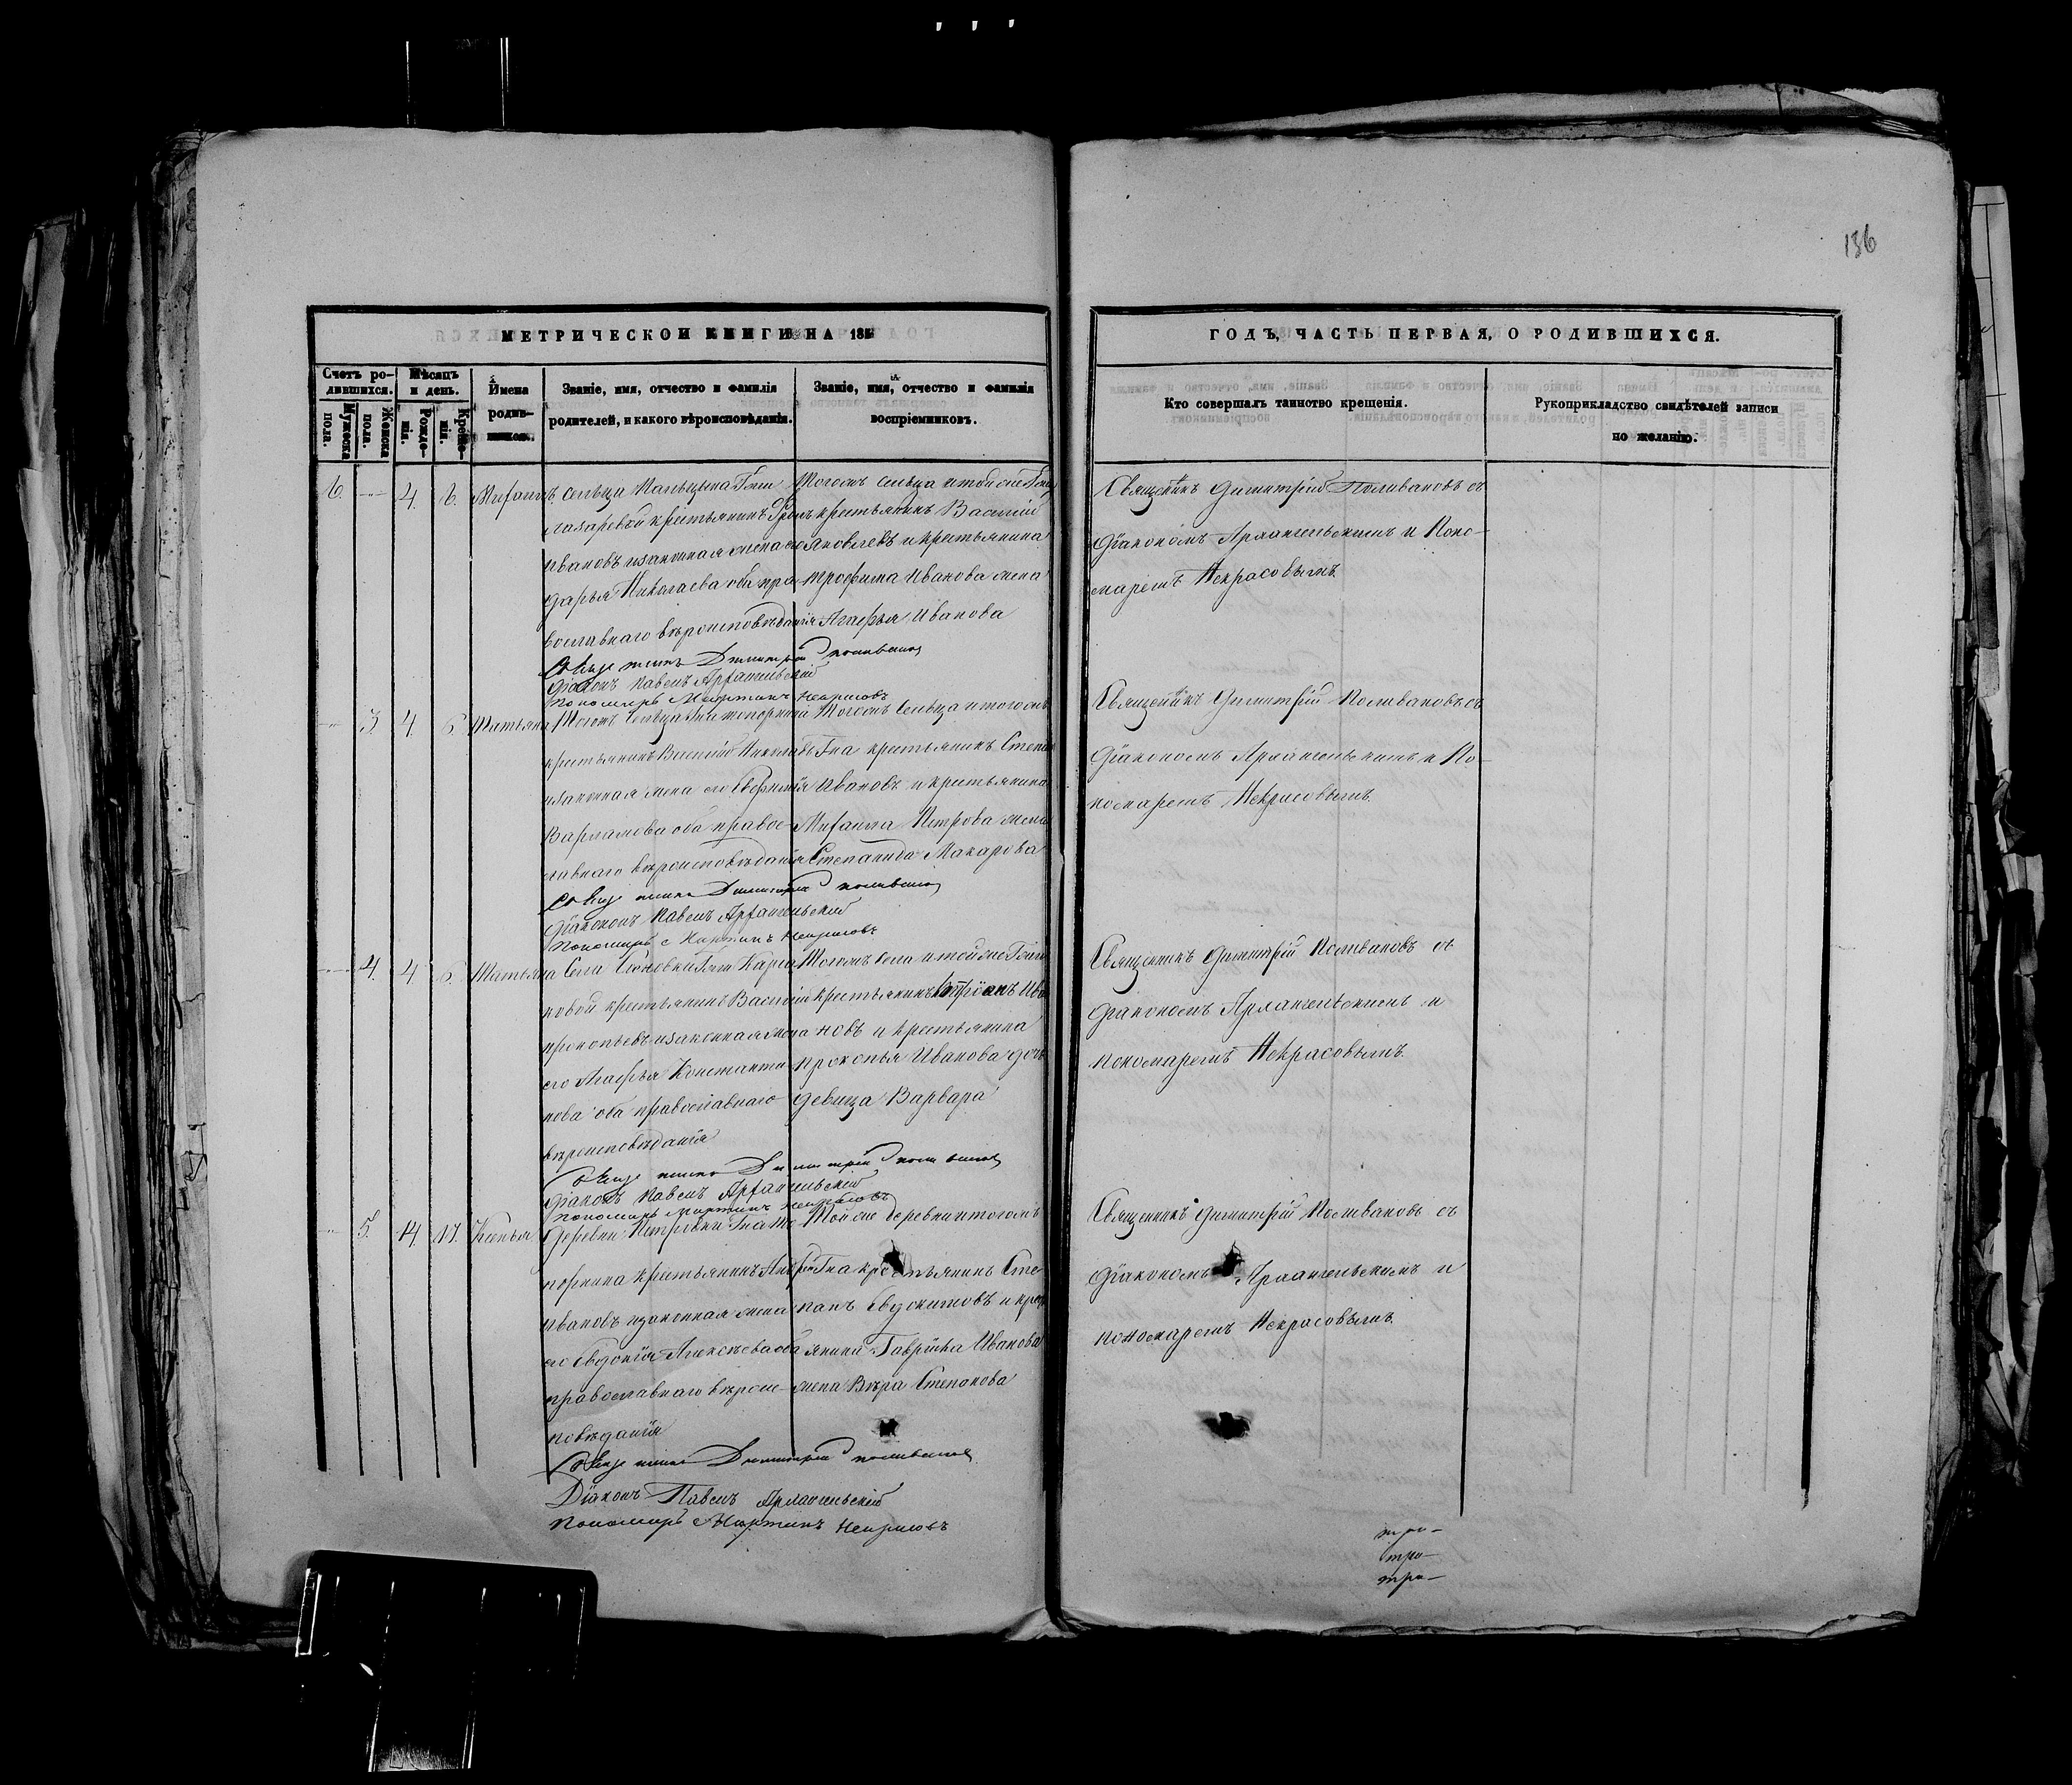 136
МЕТРИЧЕСКОЙ КНИГИ НА 185
ГОДЪ, ЧАСТЬ ПЕРВАЯ, О РОДИВШИХСЯ.
Счетъ ро-
дившихся.
Мужеска пола.
Женска пола.
Мѣсяцъ и день.
Рожде-
нія.
Креще-
нія.
Имена
родив-
шихся.
Званіе, имя, отчество и фамилія
родителей, и какого вѣроисповѣданія.
Званіе, имя, отчество и фамилія
воспріемниковъ.
Кто совершалъ таинство крещенія.
Рукоприкладство свидѣтелей записи
по желанію.
6. 4. 6. Михаилъ
сельца Мальцына Гжи
лазаревой крестьянинъ
Ивановъ и законная жена его
Дарья Николаева оба пра-
вославнаго вѣроисповѣданія
Тогожъ сельца и тойже Гжи
крестьянинъ Василій
Яковлевъ и крестьянина
трофима Иванова жена
Агафья Иванова
Священникъ Димитрій Поливановъ съ
Діакономъ Архангельскимъ и Поно-
маремъ Некрасовымъ.
Священникъ Димитрій Поливановъ
Діаконъ Павелъ Архангельскій
Пономарь Мартинъ Некрасовъ
3. 4. 6. Татьяна
Тогожъ Сельца
крестьянинъ Василій Николаевъ
и законная жена его Евфимія
Варламова оба правос-
лавнаго вѣроисповѣданія
Тогожъ Сельца и тогожъ
Гна крестьянинъ Степанъ
Ивановъ и крестьянина
Михаила Петрова жена
Степанида Макарова
Священникъ Димитрій Поливановъ съ
Діакономъ Архангельскимъ и По-
номаремъ Некрасовымъ.
Священникъ Димитрій Поливановъ
Діаконъ Павелъ Архангельскій
Пономарь Мартинъ Некрасовъ
4. 4. 6. Татьяна
Села
новой крестьянинъ Василій
прокопьевъ и законная жена
его Агафья Константи-
нова оба православнаго
вѣроисповѣданія
Тогожъ Села и тойже Гжи
крестьянинъ Ива-
новъ и крестьянина
прокопья Иванова дочь
девица Варвара
Священникъ Димитрій Поливановъ съ
діакономъ Архангельскимъ и
пономаремъ Некрасовымъ.
Священникъ Димитрій Поливановъ
Діаконъ Павелъ Архангельскій
Пономарь Мартинъ Некрасовъ
5. 14. 17. Ксенья
Деревни Петровки Гна
крестьянинъ
Ивановъ и законная жена
его Евдокія Алексѣева оба
православнаго вѣроис-
повѣданія
Тойже деревни и тогожъ
Гна крестьянинъ Сте-
панъ Евдокимовъ и крест
янина Гавріила Иванова
жена Вѣра Степанова
Священникъ Димитрій Поливановъ съ
Діакономъ Архангельскимъ и
пономаремъ Некрасовымъ.
Священникъ Димитрій Поливановъ
Діаконъ Павелъ Архангельскій
Пономарь Мартинъ Некрасовъ
три-
три-
три-